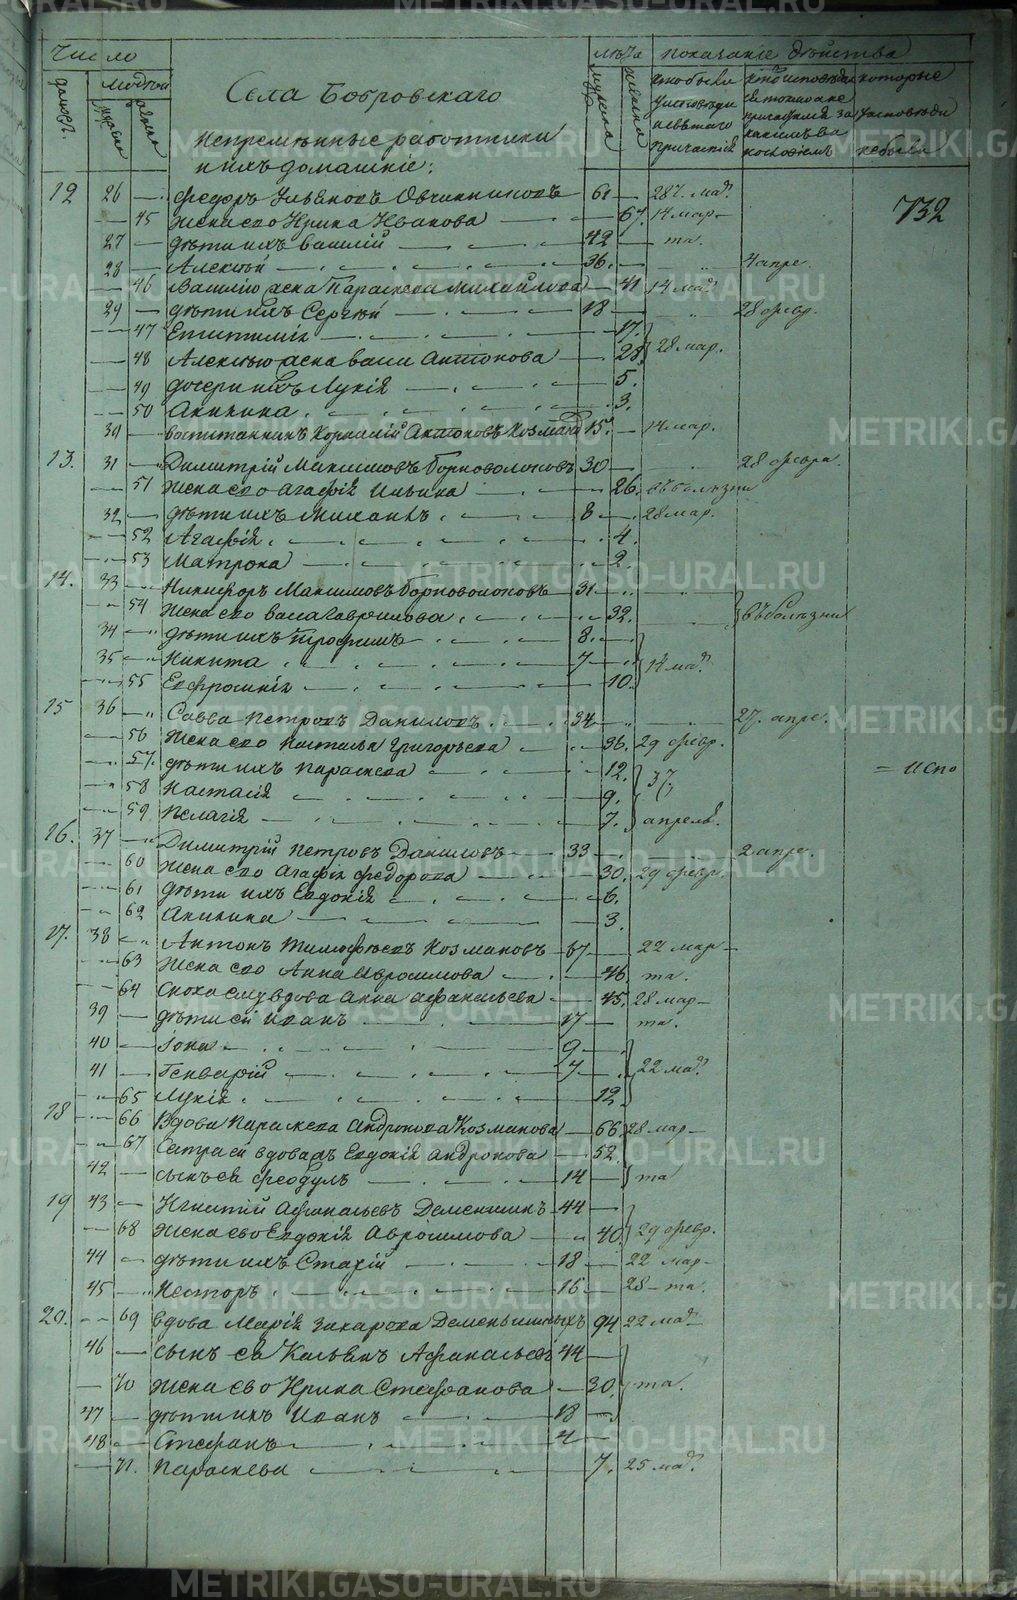 Число лѣта показаніе дѣйства
домовъ людей мужеска женска кои были у исповѣди и святаго причастія кои исповѣдались а токмо не причастились и за какимъ виновнословіемъ которые у исповѣди не были
Села Бобровскаго
Непремѣнные работники
и ихъ домашніе:
732
12 26 — Федоръ Ульяновъ Овчинниковъ 61 — 28 мар.
— 45 Жена его Ирина Иванова — 67. 14 мар —
27 — дѣти ихъ Василій 42 — та.
28 — Алексѣй 36. — 4 апре.
— 46 Василію жена Параскева Михайлова — 41 14 мар.
29 — дѣти ихъ Сергѣй 18 — 28 февр.
— 47 Епистимія 17.
— 48 Алексѣю жена Васса Антонова — 28. 28 мар.
— 49 дочери ихъ Лукія 5.
— 50 Акилина 3.
30 — воспитанникъ Корнилій Антоновъ Козманъ 15. — 14 мар.
13. 31 — Димитрій Максимовъ Борноволоковъ 30 — 28 февра.
— 51 Жена его Агафія Ильина 26. въ болѣзни
32 — дѣти ихъ Михаилъ 8 — 28 мар.
— 52 Агафія 4.
— 53 Матрона 2.
14. 33 — Никифоръ Максимовъ Борноволоковъ 31.
— 54 Жена его Васса Гаврилова 32. въ болѣзни
34 — дѣти ихъ Трофимъ 8.
35 — Никита 7 — 14 мар.
— 55 Евфросинія 10.
15 36 — Савва Петровъ Даниловъ 34 — 27. апре.
— 56 Жена его Настасья Григорьева 36. 29 февр.
— 57. дѣти ихъ Параскева 12. = испо
— 58 Настасія 9. 3/7
— 59 Пелагія 7. апреля.
16. 37 — Димитрій Петровъ Даниловъ 33 — 2 апре
— 60 Жена его Агафія Федорова 30. 29 февр.
— 61 дѣти ихъ Евдокія 6.
— 62 Акилина 3.
17. 38 — Антонъ Тимофѣевъ Козмановъ 67 — 22 мар —
— 63 Жена его Анна Аврамова 46. та.
— 64 Сноха ему вдова Анна Афанасьева 45. 28 мар —
39 — дѣти ей Иванъ 17 — та.
40 — Іона 9
41 — Генварій 7 22 мар.
— 65 Лукія 12
18 — 66 Вдова Параскева Андронова Козманова — 66 28 мар —
— 67 Сестра ей вдова Евдокія Андронова — 52
42 — сынъ ея Феодулъ 14 — та
19 43 — Игнатій Афанасьевъ Деменшинъ 44 —
— 68 Жена его Евдокія Аврамова 40. 29 февр.
44 — дѣти ихъ Стахій 18 — 22 мар —
45 — Несторъ 16 — 28 — та.
20. — 69 вдова Марія Захарова Деменьшиныхъ 94 22 мар
46 — сынъ ея Калинъ Афанасьевъ 44 —
— 70 Жена его Ирина Стефанова — 30. та.
47 — дѣти ихъ Иванъ 18
48 — Стефанъ 4 —
— 71. Параскева 7. 25 мар.